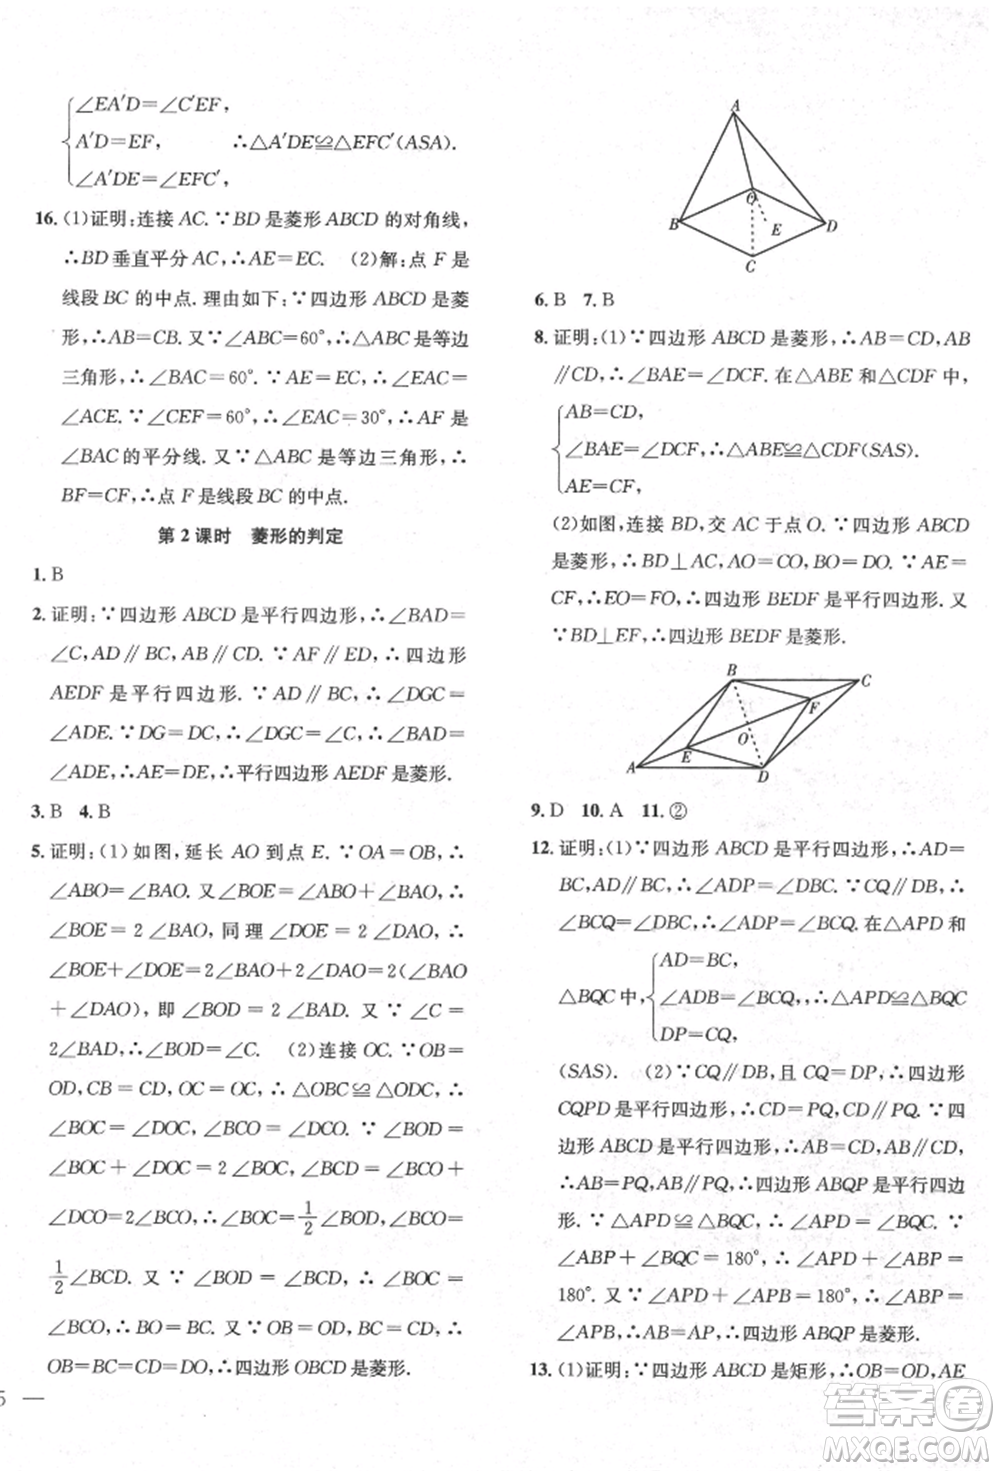 ∠EA′D=∠C′EF,
A′D=EF,  ∴△A′DE≌△EFC′(ASA).
∠A′DE=∠EFC′,
16. (1)证明:连接 AC. ∵BD 是菱形 ABCD 的对角线,
∴BD 垂直平分 AC,∴AE=EC.  (2)解:点 F 是
线段 BC 的中点.理由如下:∵四边形 ABCD 是菱
形,∴AB=CB.又∵∠ABC=60°,∴△ABC 是等边
三角形,∴∠BAC=60°.∵AE=EC,∴∠EAC=
∠ACE.∵∠CEF=60°,∴∠EAC=30°,∴AF 是
∠BAC 的平分线.又∵△ABC 是等边三角形,∴
BF=CF,∴点 F 是线段 BC 的中点.
第 2 课时  菱形的判定
1. B
2. 证明:∵四边形 ABCD 是平行四边形,∴∠BAD=
∠C,AD∥BC,AB∥CD.∵AF∥ED,∴四边形
AEDF 是平行四边形.∵AD∥BC,∴∠DGC=
∠ADE.∵DG=DC,∴∠DGC=∠C,∴∠BAD=
∠ADE,∴AE=DE,∴平行四边形 AEDF 是菱形.
3. B  4. B
5. 证明:(1)如图,延长 AO 到点 E.∵OA=OB,∴
∠ABO=∠BAO.又∠BOE=∠ABO+∠BAO,∴
∠BOE=2∠BAO,同理∠DOE=2∠DAO,∴
∠BOE+∠DOE=2∠BAO+2∠DAO=2(∠BAO
+∠DAO),即∠BOD=2∠BAD.又∵∠C=
2∠BAD,∴∠BOD=∠C.  (2)连接 OC.∵OB=
OD,CB=CD,OC=OC,∴△OBC≌△ODC,∴
∠BOC=∠DOC,∠BCO=∠DCO.∵∠BOD=
∠BOC+∠DOC=2∠BOC,∠BCD=∠BCO+
∠DCO=2∠BCO,∴∠BOC=1/2∠BOD,∠BCO=
1/2∠BCD.又∵∠BOD=∠BCD,∴∠BOC=
∠BCO,∴BO=BC.又∵OB=OD,BC=CD,∴
OB=BC=CD=DO,∴四边形 OBCD 是菱形.
5 —
A
O
B
E
D
C
6. B  7. B
8. 证明:(1)∵四边形 ABCD 是菱形,∴AB=CD,AB
∥CD,∴∠BAE=∠DCF.在△ABE 和△CDF 中,
AB=CD,
∠BAE=∠DCF,∴△ABE≌△CDF(SAS).
AE=CF,
(2)如图,连接 BD,交 AC 于点 O.∵四边形 ABCD
是菱形,∴BD⊥AC,AO=CO,BO=DO.∵AE=
CF,∴EO=FO,∴四边形 BEDF 是平行四边形.又
∵BD⊥EF,∴四边形 BEDF 是菱形.
B
C
F
O
E
A
D
9. D  10. A  11. ②
12. 证明:(1)∵四边形 ABCD 是平行四边形,∴AD=
BC,AD∥BC,∴∠ADB=∠DBC.∵CQ∥DB,∴
∠BCQ=∠DBC,∴∠ADP=∠BCQ.在△APD 和
AD=BC,
△BQC 中, ∠ADB=∠BCQ, ,∴△APD≌△BQC
DP=CQ,
(SAS).  (2)∵CQ∥DB,且 CQ=DP,∴四边形
CQPD 是平行四边形,∴CD=PQ,CD∥PQ.∵四
边形 ABCD 是平行四边形,∴AB=CD,AB∥CD,
∴AB=PQ,AB∥PQ,∴四边形 ABQP 是平行四边
形.∵△APD≌△BQC,∴∠APD=∠BQC.∵
∠ABP+∠BQC=180°,∴∠APD+∠ABP=
180°.又∵∠APD+∠APB=180°,∴∠ABP=
∠APB,∴AB=AP,∴四边形 ABQP 是菱形.
13. (1)证明:∵四边形 ABCD 是矩形,∴OB=OD,AE
答案圈
MXQE.COM